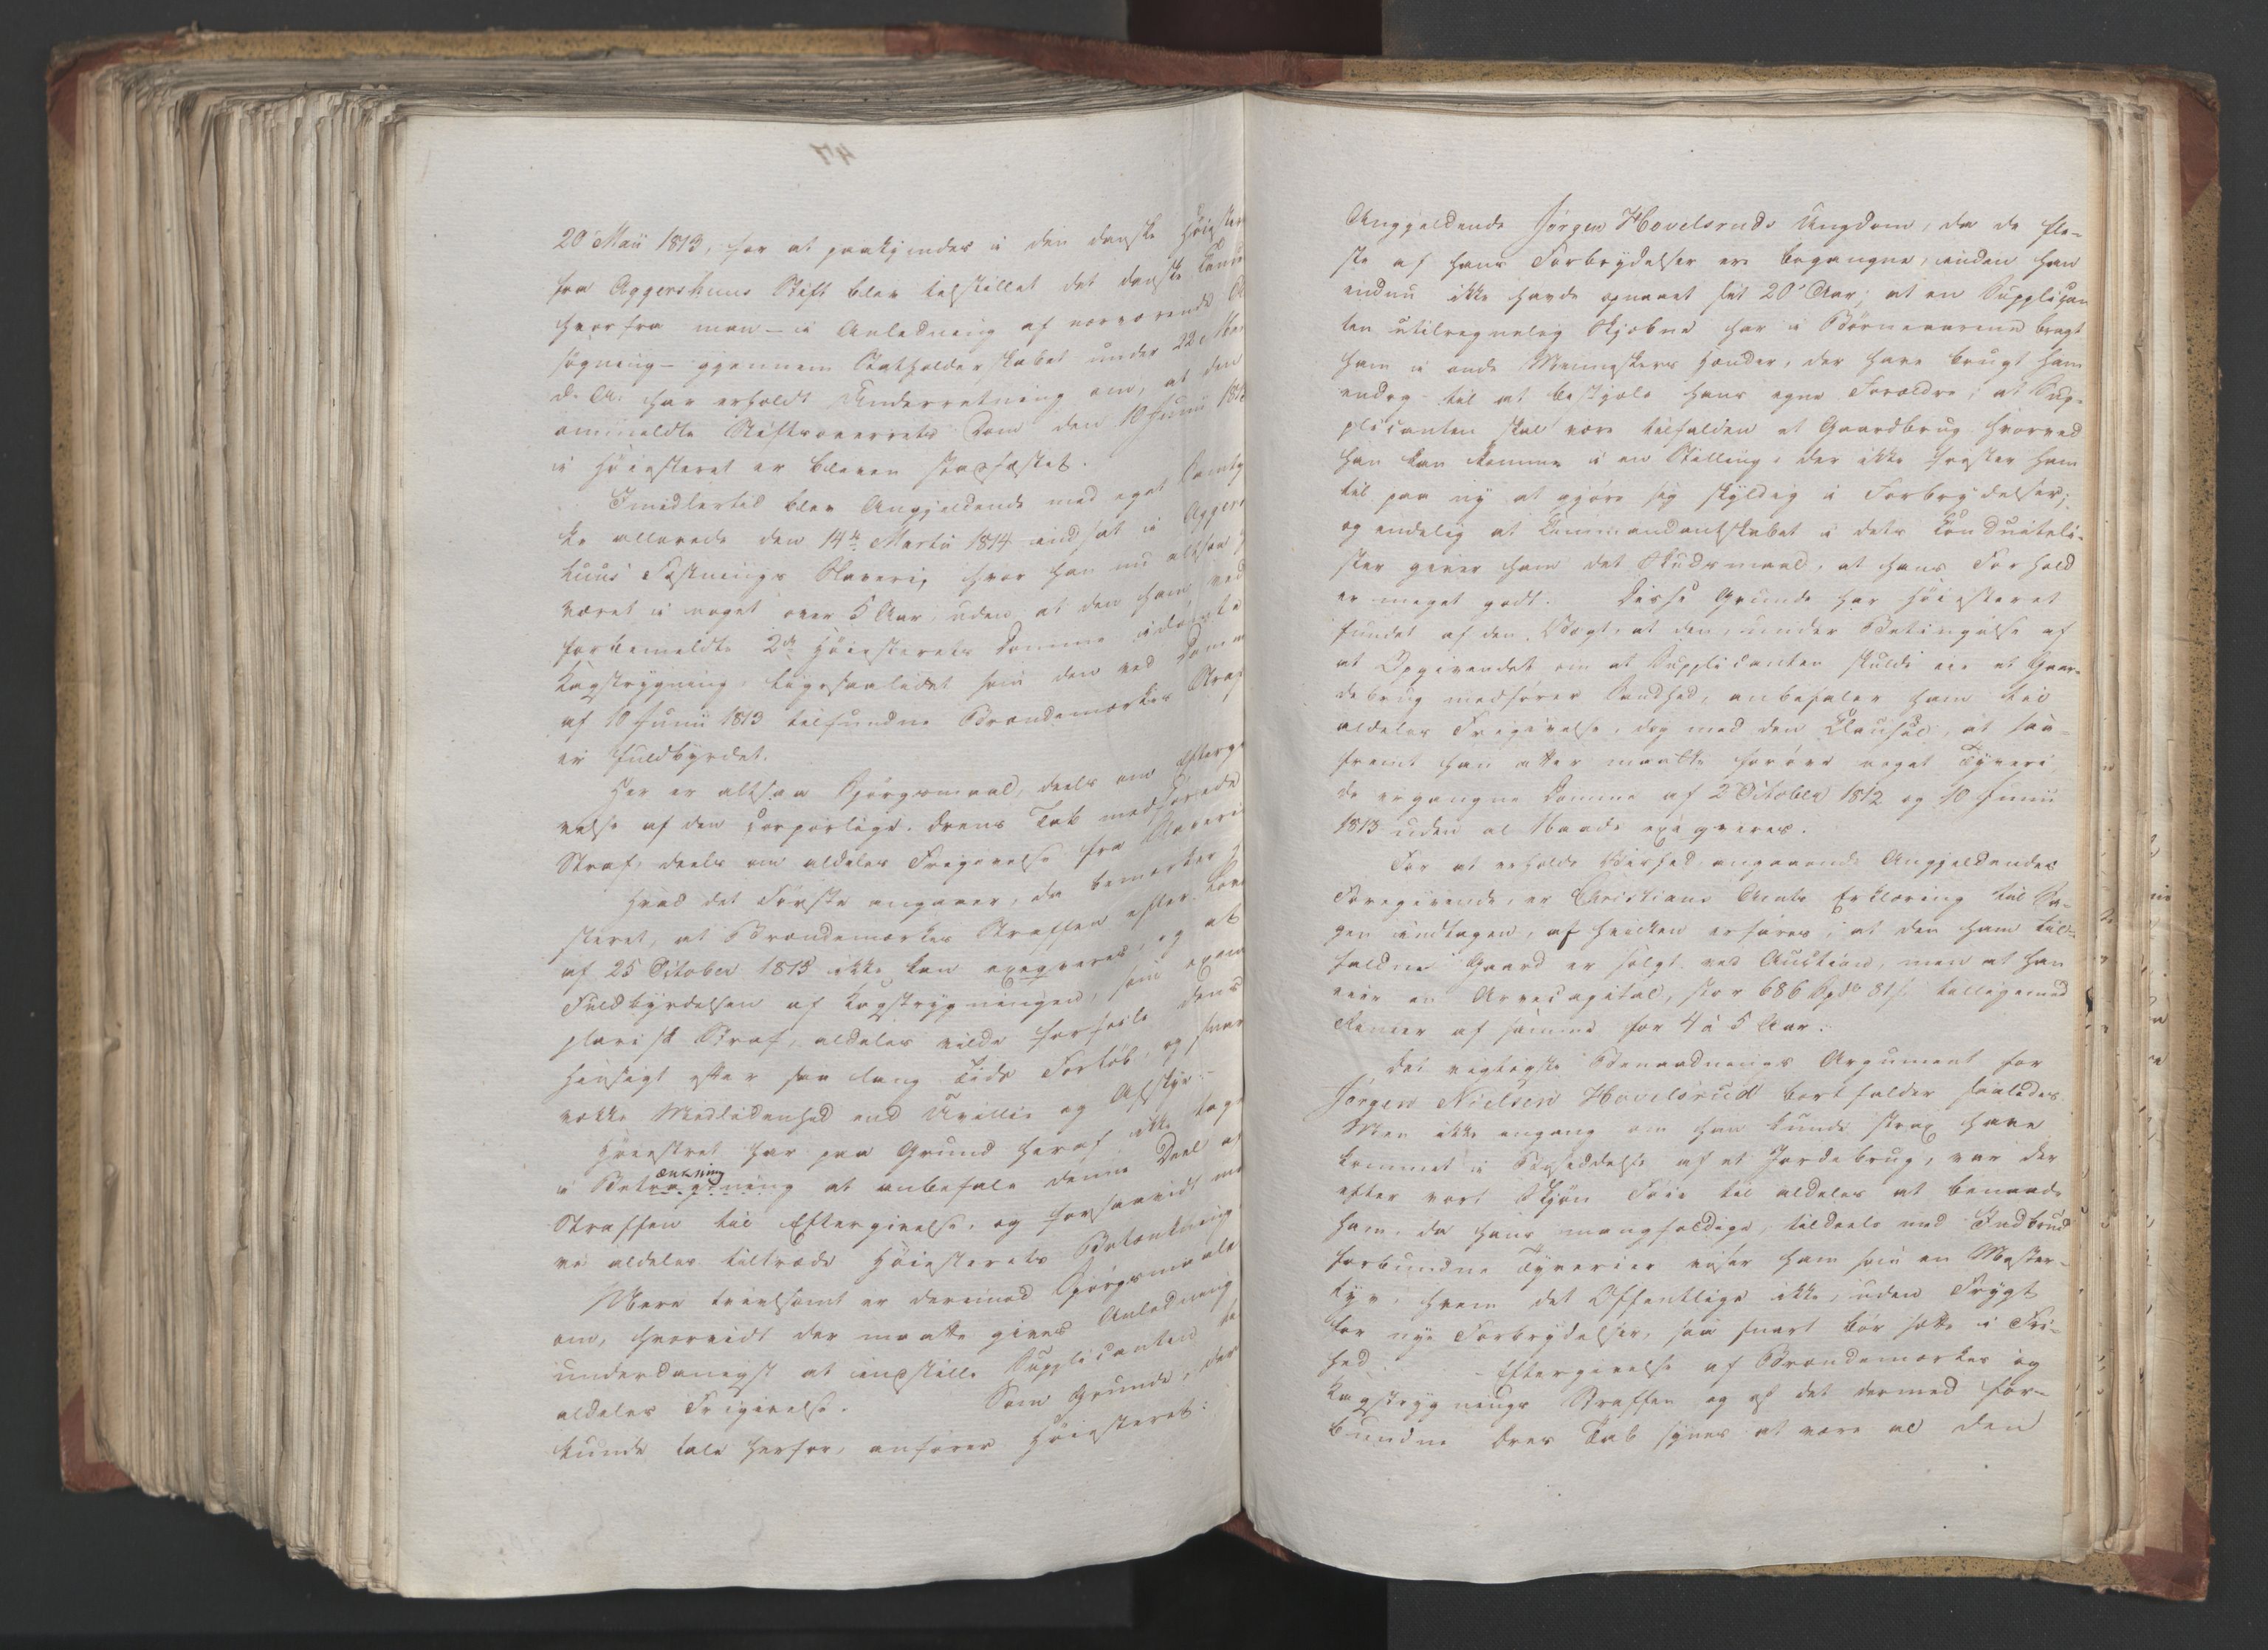 20 Maii 1813, for at paakjendes i den danske Höiester
fra Aggershuus Stift blev tilstillet det danske Canc
hvorfra man - i Anledning af nærværende A
søgning - gjennem Statholderskabet under 22 Mar
d. A. har erholdt Underretning om, at den
ommeldte Stiftsoverrets Dom den 10 Junii 1813
i Höiesteret er bleven stadfæstet.
Imidlertid blev Angjeldende med eget Samty
ke allerede den 14de Martii 1814 indsat i Agger
huus Fæstnings Slaveri, hvor han nu altsaa
været i noget over 5 Aar, uden at den ham ved
forbemeldte 2de Höiesterets Domme idömte
Kagstrygning, ligesaalidet som den ved Domm
af 10 Junii 1813 tilfundne Brændemærkes Straf
er fuldbyrdet.
Her er altsaa Spörgsmaal, deels om Efterg
velse af den corporlige Ærens Tab medförende
Straf, deels om aldeles Frigivelse fra Slaveri
Hvad det Förste angaaer, da bemærker H
steret, at Brændemærkes Straffen efter Lov
af 25 October 1815 ikke kan exeqveres, og at
Fuldbyrdelsen af Kagstrygningen, som exem
plarisk Straf, aldeles vilde forfeile dens
Hensigt efter saa lang Tids Forlöb, og snar
vække Medlidenhed end Uvillie og Afskye. -
Höiesteret har paa Grund heraf ikke tag
ænkning
i Betragtning at anbefale denne Deel af
Straffen til Eftergivelse, og forsaavidt maa
vi aldeles tiltræde Höiesterets Betænkning
Mere tvivlsomt er derimod Spörgsmaale
om, hvorvidt der maatte gives Anledning
underdanigst at indstille Supplicanten til
aldeles Frigivelse. Som Grunde, der
kunde tale herfor, anförer Höiesteret:
Angjeldende Jörgen Hovelsruds Ungdom, da de fle-
ste af hans Forbrydelser ere begangne, inden han
endnu ikke havde opnaaet sit 20' Aar; at en Supplican
ten utilregnelig Skjebne har i Börneaarene bragt
ham i onde Menneskers Hænder, der have brugt ham
endog til at bestjæle hans egne Forældre; at Sup-
plicanten skal være tilfalden et Gaardbrug hvorved
han kan komme i en Stilling, der ikke frister ham
til paa ny at gjöre sig skyldig i Forbrydelser;
og endelig at Commandantskabet i dets Conduiteli-
ster giver ham det Skudsmaal, at hans Forhold
er meget godt. Disse Grunde har Höiesteret
fundet af den Vægt, at den, under Betingelse af
at Opgivendet om at Supplicanten skulde eie et Gaar-
debrug medförer Sandhed, anbefaler ham til
aldeles Frigivelse, dog med den Clausul, at saa-
fremt han atter maatte foröve noget Tyveri,
de ergangne Domme af 2 October 1812 og 10 Junii
1813 uden al Naade exeqveres.
For at erholde Vished angaaende Angjeldendes
Foregivende, er Christians Amts Erklæring til Sa-
gen indtagen, af hvilken erfares, at den ham til-
faldne Gaard er solgt ved Auction, men at han
eier en Arvecapital, stor 686 Spd 81 s tilligemed
Renter af samme for 4 á 5 Aar.
Det vigtigste Benaadnings Argument for
Jörgen Nielsen Hovelsrud bortfalder saaledes.
Men ikke engang om han kunde strax have
kommet i Besiddelse af et Jordebrug, var der
efter vort Skjön Föie til aldeles at benaade
ham, da hans mangfoldige, tildeels med Indbrud
forbundne Tyverier viser ham som en Mester-
tyv, hvem det Offentlige ikke, uden Frygt
for nye Forbrydelser, saa snart bör sætte i Fri-
hed. - Eftergivelse af Brændemærkes og
Kagstrygnings Straffen og af det dermed for-
bundne Æres Tab synes at være al den